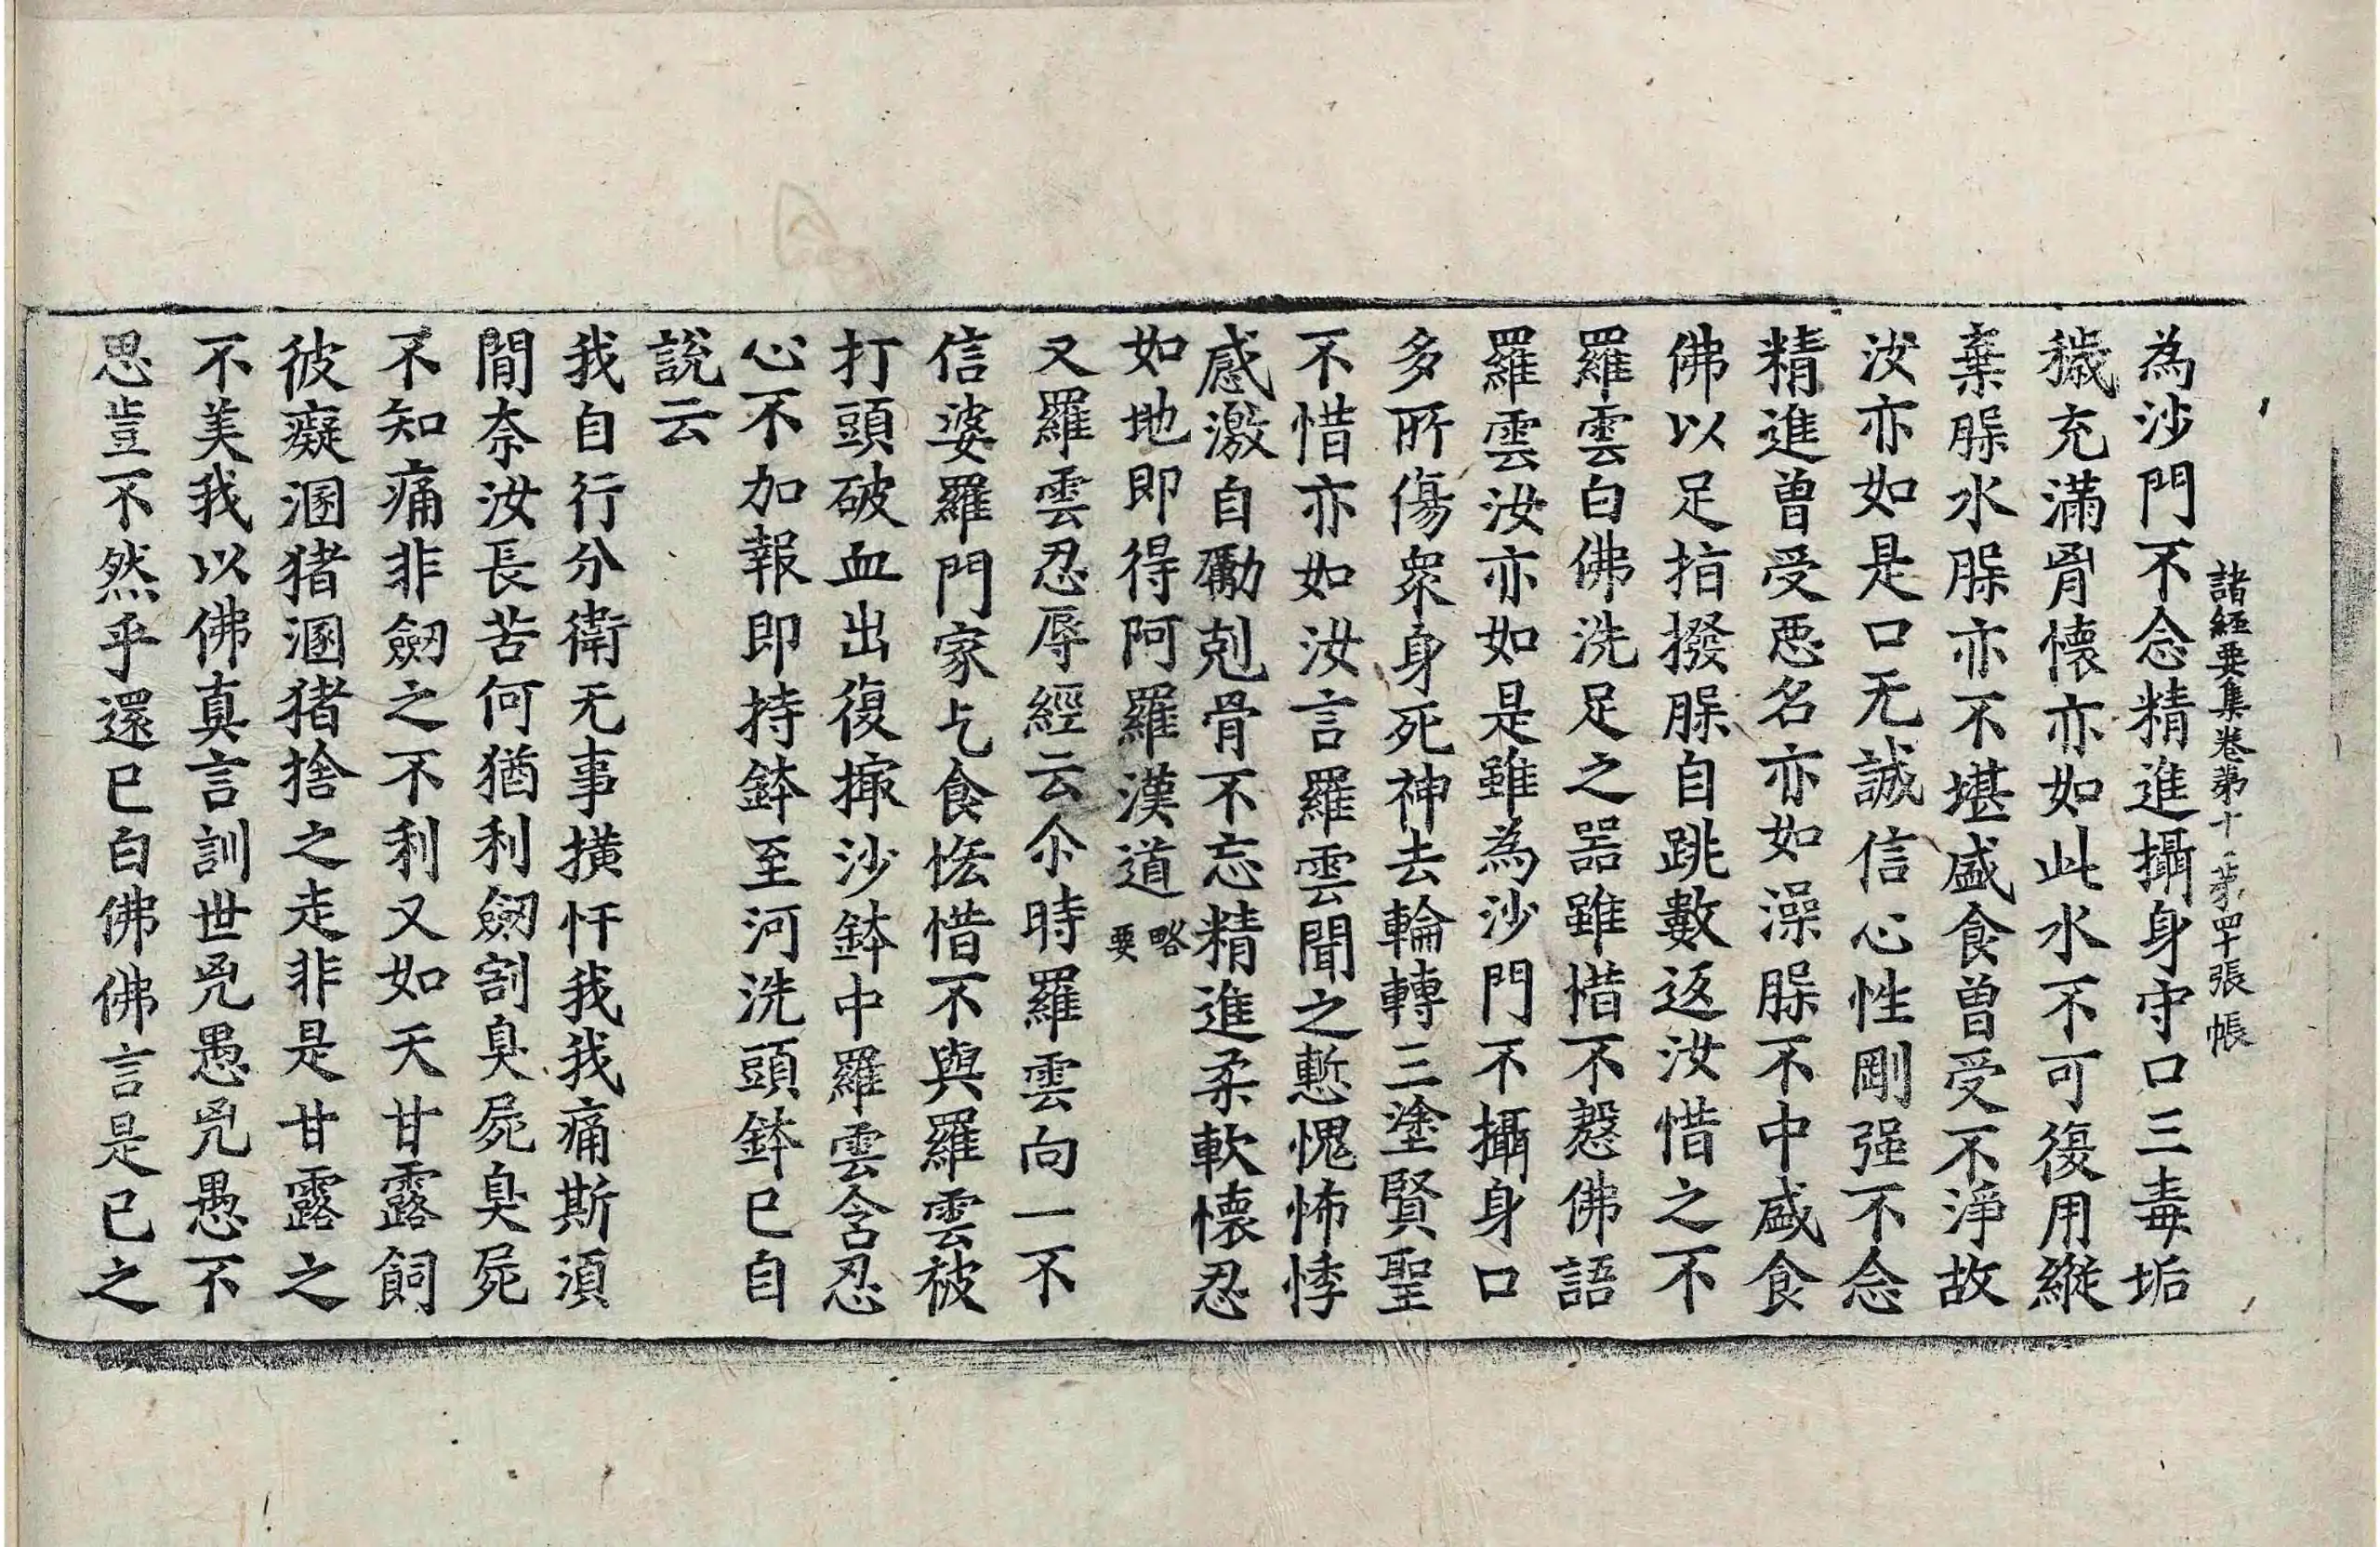 諸經要集卷第十 第四十張 帳
為沙門不念精進攝身守口三毒垢
穢充滿胷懷亦如此水不可復用縱
棄䐾水䐾亦不堪盛食曾受不淨故
汝亦如是口无誠信心性剛强不念
精進曾受惡名亦如澡䐾不中盛食
佛以足指撥䐾自跳數返汝惜之不
羅雲白佛洗足之器雖惜不慇佛語
羅雲汝亦如是雖為沙門不攝身口
多所傷衆身死神去輪轉三塗賢聖
不惜亦如汝言羅雲聞之慙愧怖悸
感激自勵剋骨不忘精進柔軟懷忍
如地即得阿羅漢道略要
又羅雲忍辱經云尒時羅雲向一不
信婆羅門家乞食恡惜不與羅雲被
打頭破血出復撮沙鉢中羅雲含忍
心不加報即持鉢至河洗頭鉢已自
說云
我自行分衛无事橫忓我我痛斯須
間奈汝長苦何猶利劒割臭屍臭屍
不知痛非劒之不利又如天甘露飼
彼癡溷猪溷猪捨之走非是甘露之
不美我以佛真言訓世兇愚兇愚不
思豈不然乎還已白佛佛言是已之